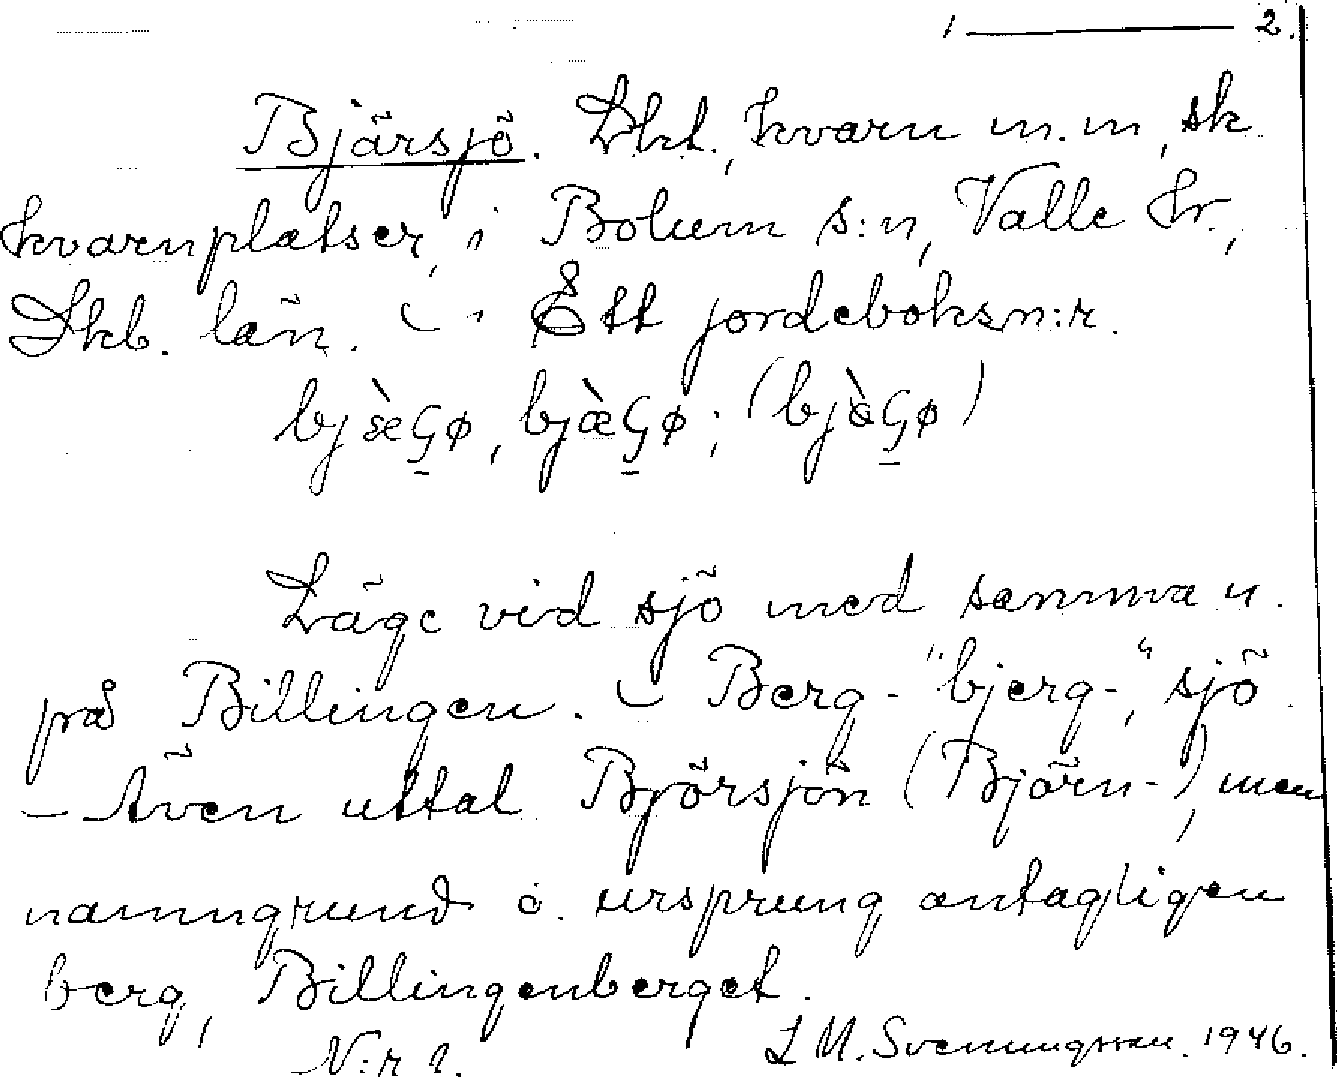 1 ——— 2.
Bjärsjö. Lht., kvarn m.m, sk.
kvarnplatser, i Bolum s:n, Valle hr.,
Skb. län. – Ett jordeboksn:r.
bjæ̀Ꞔø, bjæ̀Ꞔø; (bjàꞔø)
Läge vid sjö med samma n.
på Billingen. – Berg- "bjerg-", sjö.
– Även uttal Björsjön (Björn-), men
namngrund o. ursprung antagligen
berg, Billingenberget.
N:r 2. L M. Svenungsson. 1946.